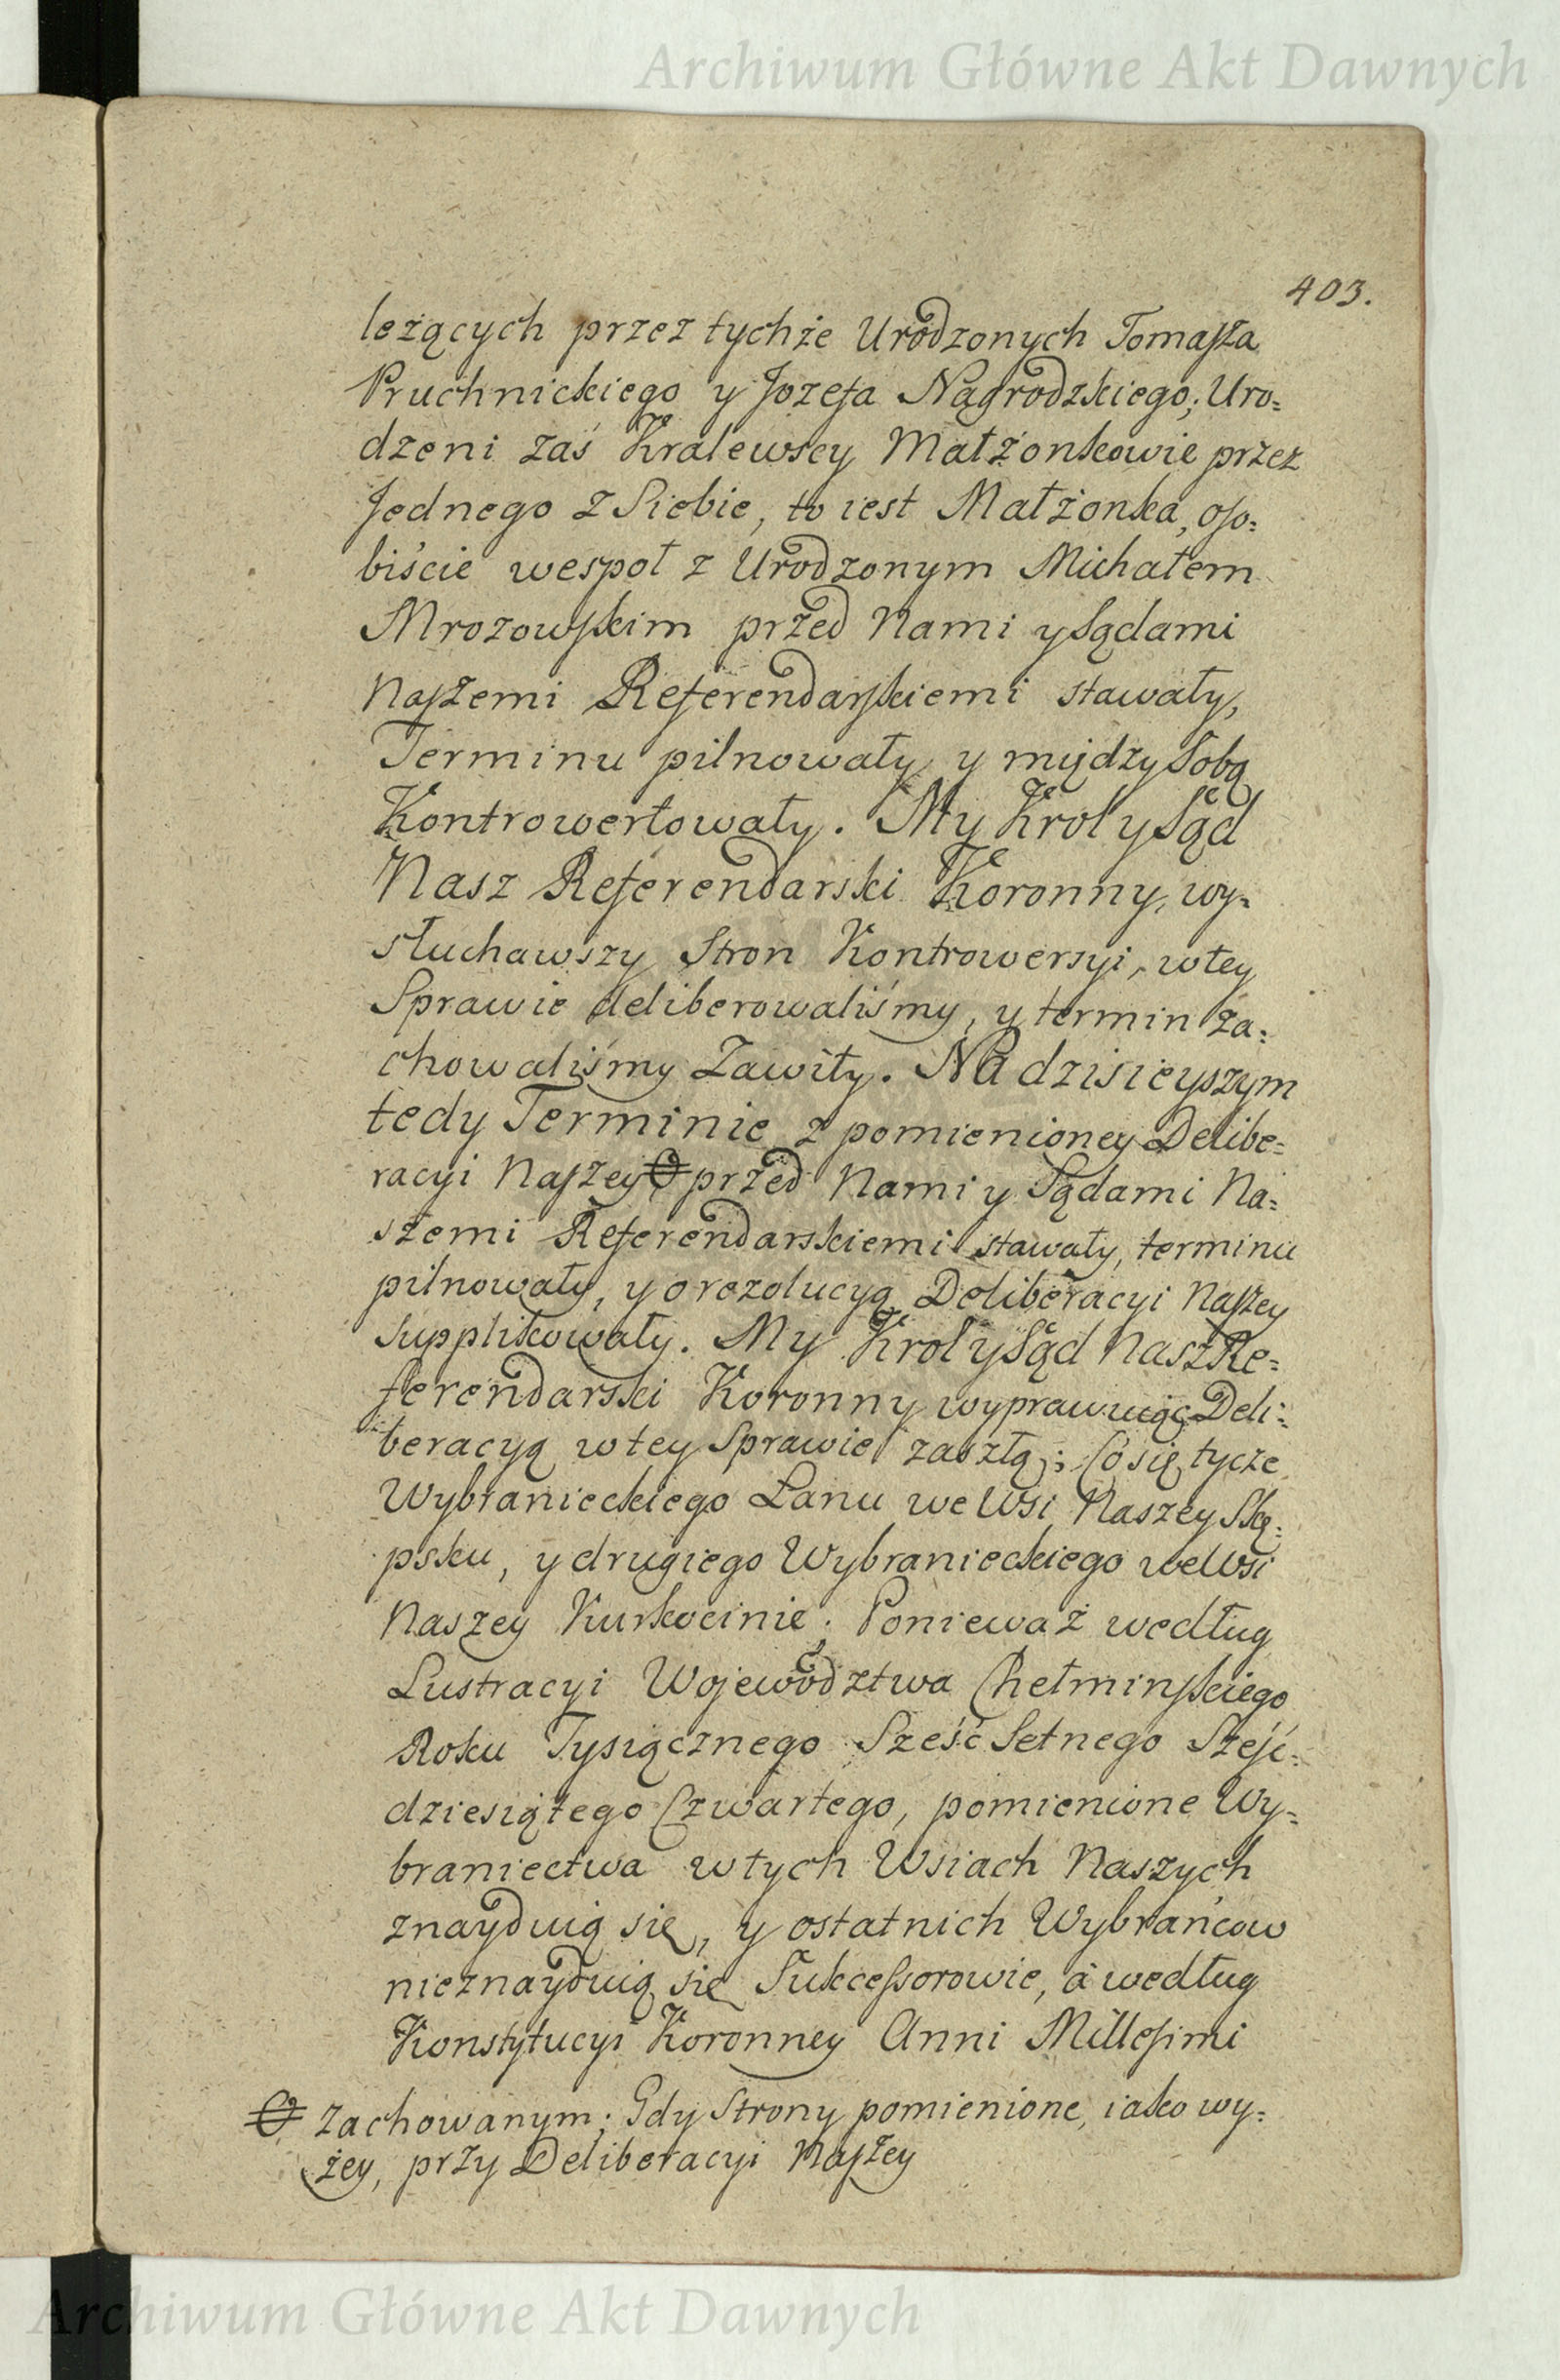 Archiwum Główne Akt Dawnych
403.
leżących przez tychże Urodzonych Tomaſza
Pruchnickiego y Jozefa Nagrodzkiego; Uro=
dzeni zaś Kralewscy Małżonkowie przez
Jednego z Siebie, to iest Małżonka, oſo=
biście wespoł z Urodzonym Michałem
Mrozowſkim przed Nami y Sądami
Naſzemi Referendarſkiemi stawały,
Terminu pilnowały y między Sobą
Kontrowertowały. My Krol y Sąd
Nasz Referendarski Koronny, wy=
słuchawszy Stron Kontrowersyi, w tey
Sprawie deliberowaliśmy, y termin za=
chowaliśmy Zawity. Na dzisieyszym
tedy Terminie z pomienioney Delibe=
racyi Naſzey Ꝋ przed Nami y Sądami Na=
szemi Referendarskiemi stawały, terminu
pilnowały, y o rezolucyą Deliberacyi Naſzey
supplikowały. My Krol y Sąd Nasz Re=
ferendarski Koronny wyprawuiąc Deli=
beracyą w tey Sprawie zaszłą; Co się tycze
Wybranieckiego Łanu we Wsi Naszey Ską=
psku, y drugiego Wybranieckiego we Wsi
Naszey Kurkocinie; Ponieważ według
Lustracyi Wojewodztwa Chełminſkiego
Roku Tysiącznego Sześć Setnego Szeſć=
dziesiątego Czwartego, pomienione Wy=
braniectwa w tych Wsiach Naszych
znayduią się, y ostatnich Wybrańcow
nieznayduią się Sukceſsorowie, á według
Konstytucyi Koronney Anni Milleſimi
Ꝋ zachowanym; Gdy Strony pomienione, iako wy=
żey, przy Deliberacyi Naſzey
Archiwum Główne Akt Dawnych